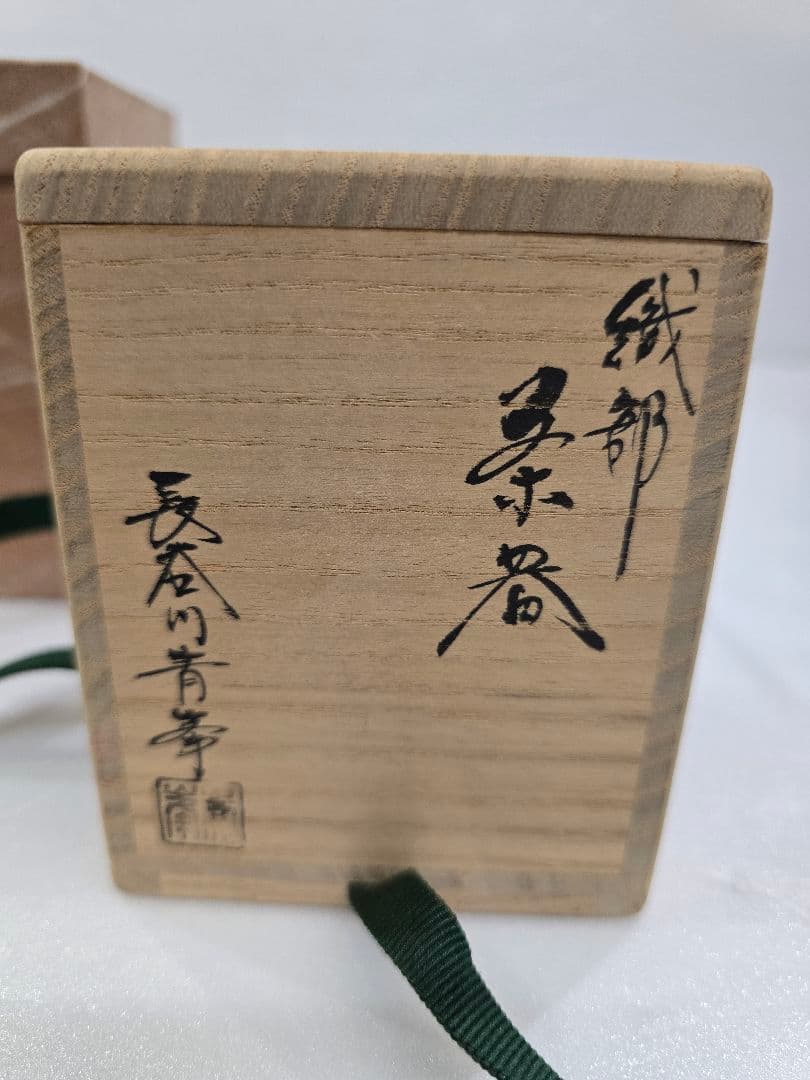 織部
茶器
長谷川青峯